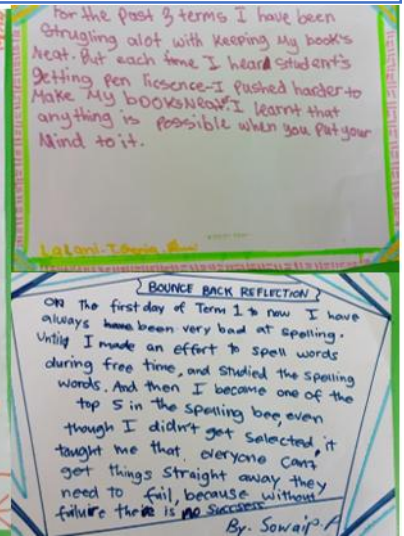 For the past 3 terms I have been
strugling alot with keeping My book's
Neat. But each time I heard student's
getting pen licsence-I pushed harder to
Make My bOOKSNeat I learnt that
anything is possible when you put your
Mind to it.
BOUNCE BACK REFLECTION
ON The first day of Term 1 to now I have
always have been very bad at spelling.
Until I made an effort to spell words
during free time, and studied the spelling
words. And then I became one of the
top 5 in the spelling bee, even
though I didn't get selected, it
taught me that everyone Cant
get things straight away they
need to fail, because without
failuire there is no succsess
By. Sowaip. A